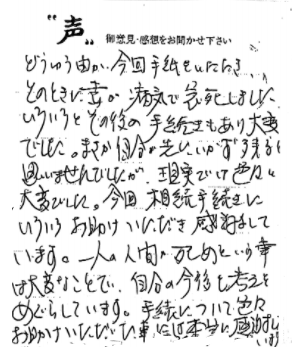 "声" 御意見・感想をお聞かせ下さい
どういう由か、今回手紙をいただき
そのときに妻が病気で急死しました
いろいろとその後の手続きもあり大変
でした。まさか自分が先にいかず残ると
思いませんでしたが、現実でいて色々と
大変でした。今回相続手続きに
いろいろお助けいただき感謝をして
います。一人の人間が死ぬという事
は大変なことで、自分の今後も考えを
めぐらしています。手続きについて色々
お助けいただいた事には本当に感謝して
います